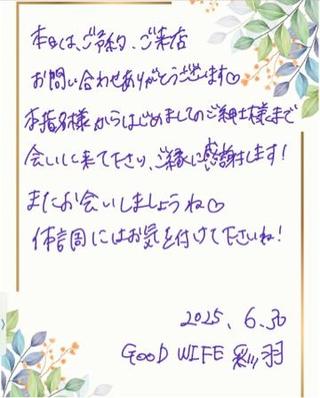 本日は、ご予約、ご来店
お問い合わせありがとうございます♡
本指名様からはじめましてのご紳士様まで
会いに来て下さり、ご縁に感謝します!
またお会いしましょうね♡
体調にはお気を付けて下さいね!
2025.6.30
GOOD WIFE 彩羽